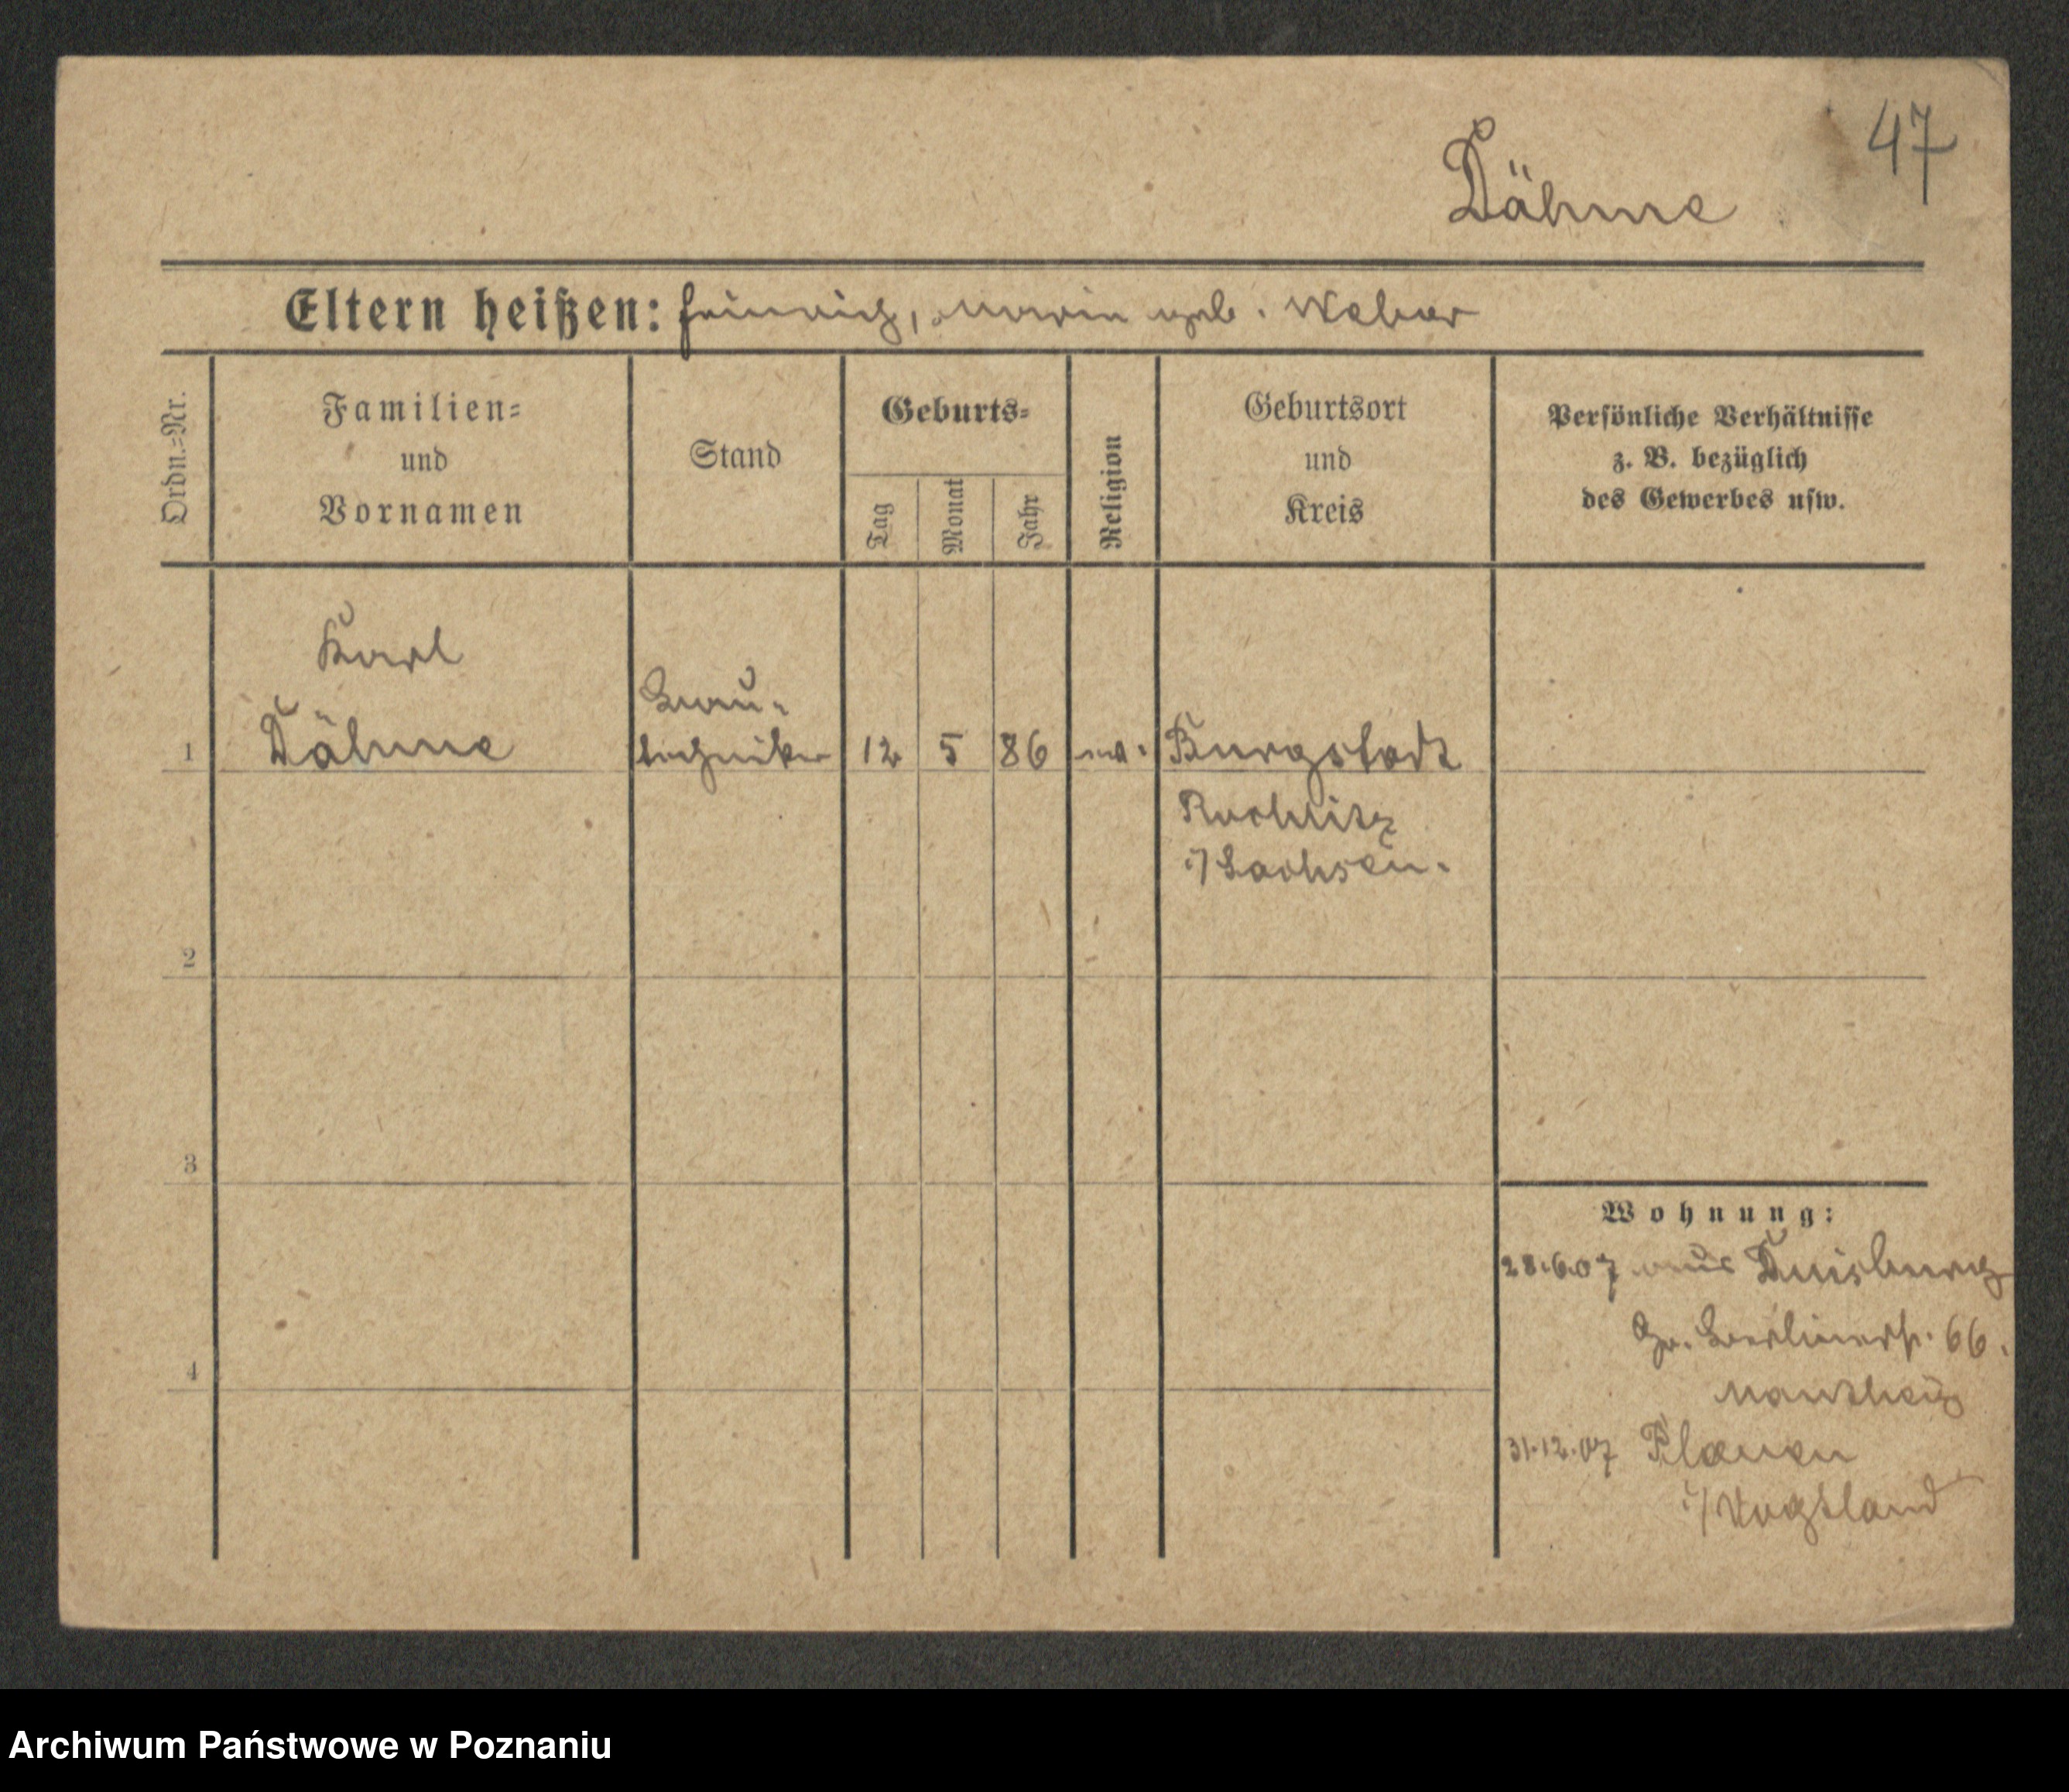 47
Dähme
Eltern heißen: Heinrich, Marie geb. Weber
Ordn.=Nr.
Familien=
und
Vornamen
Stand
Geburts=
Tag
Monat
Jahr
Religion
Geburtsort
und
Kreis
Persönliche Verhältnisse
z. B. bezüglich
des Gewerbes usw.
Karl
Bau-
1 Dähme techniker 12 5 86 ev. Burgstadt
Rochlitz
i/Sachsen.
2
3
4
Wohnung:
28.6.07 aus Duisburg
Gr. Berlinerstr. 66.
31.12.07 Plauen
i/Vogtland
Archiwum Państwowe w Poznaniu